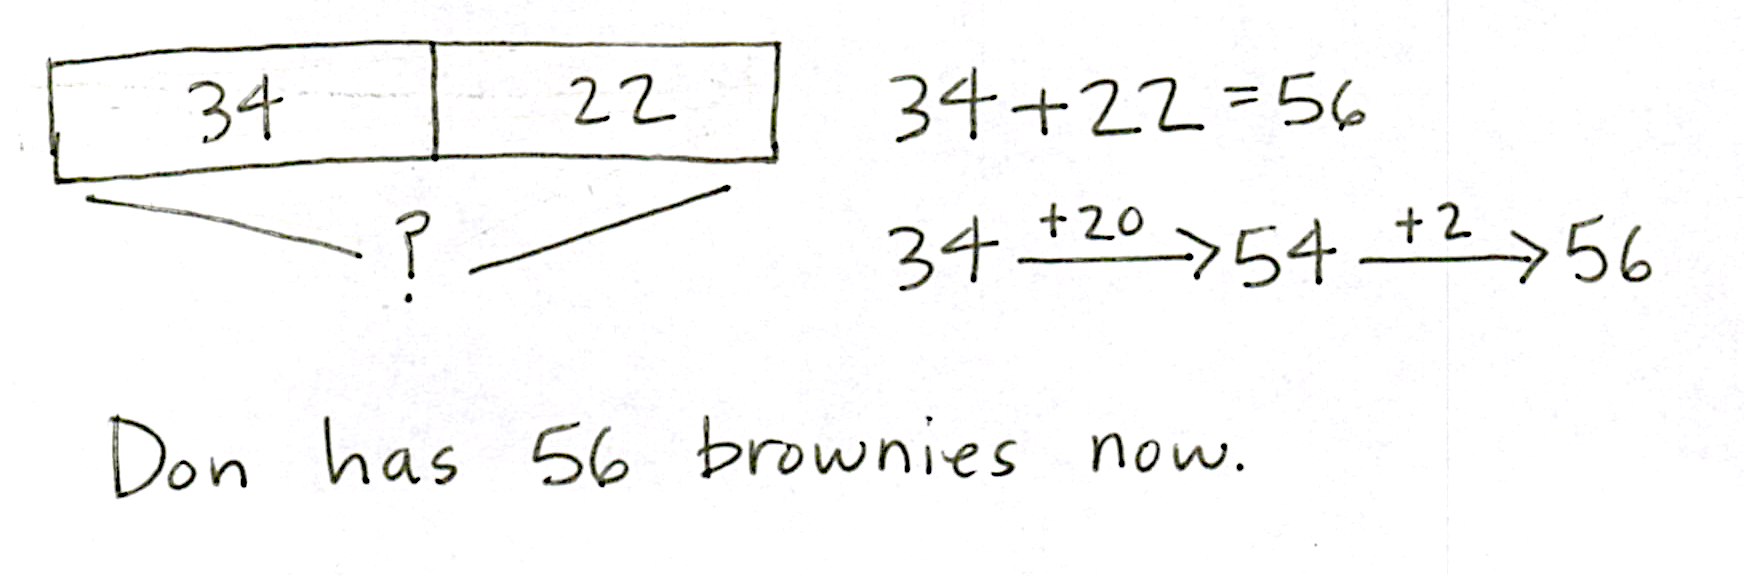 34 22 34+22=56
?
+20 +2
34 → 54 → 56
Don has 56 brownies now.